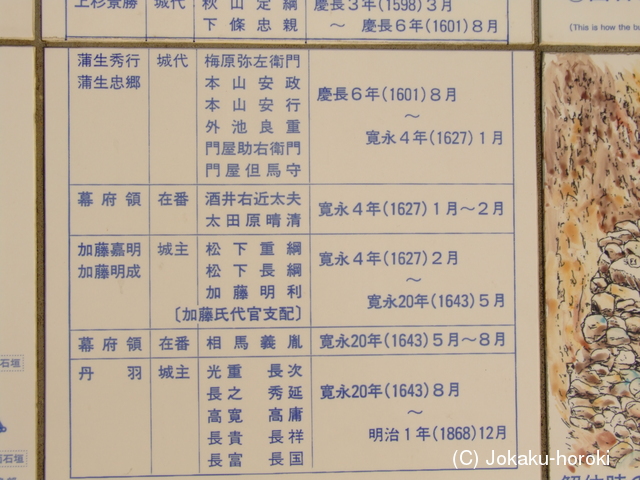 上杉景勝 城代 秋山定綱 慶長3年(1598)3月
下條忠親 ～ 慶長6年(1601)8月
(This is how the bu
蒲生秀行 城代 梅原弥左衛門
蒲生忠郷 本山安政 慶長6年(1601)8月
本山安行 ～
外池良重 寛永4年(1627)1月
門屋助右衛門
門屋但馬守
幕府領 在番 酒井右近太夫 寛永4年(1627)1月～2月
太田原晴清
加藤嘉明 城主 松下重綱 寛永4年(1627)2月
加藤明成 松下長綱 ～
加藤明利 寛永20年(1643)5月
〔加藤氏代官支配〕
幕府領 在番 相馬義胤 寛永20年(1643)5月～8月
丹羽 城主 光重 長次
長之 秀延 寛永20年(1643)8月
高寛 高庸 ～
長貴 長祥 明治1年(1868)12月
長富 長国
石垣
石垣
(C) Jokaku-horoki